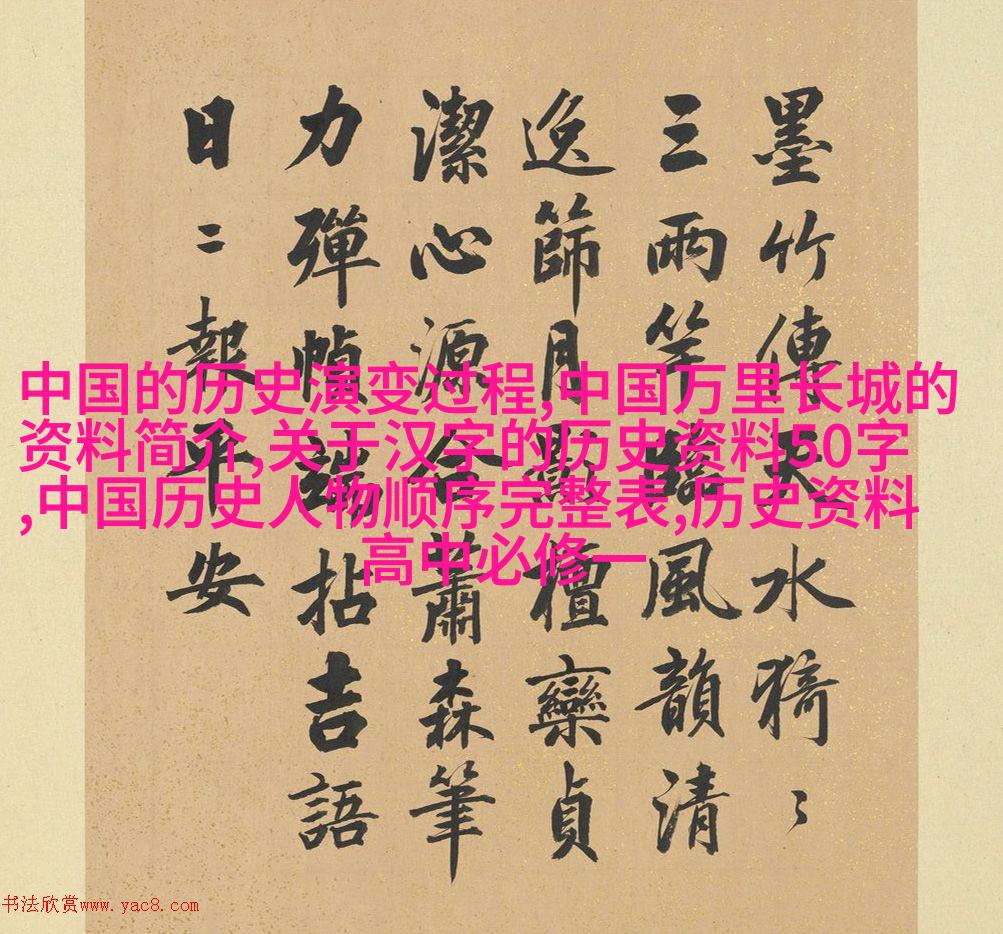 墨竹傳天水猗〻
三兩竿風韻清
逸篩月檀欒貞
潔心源合蕭森筆
力彈幀拈吉語
日二報平安
中国的历史演变过程,中国万里长城的
资料简介,关于汉字的历史资料50字
,中国历史人物顺序完整表,历史资料
高中必修一
书法欣赏www.yac8.com